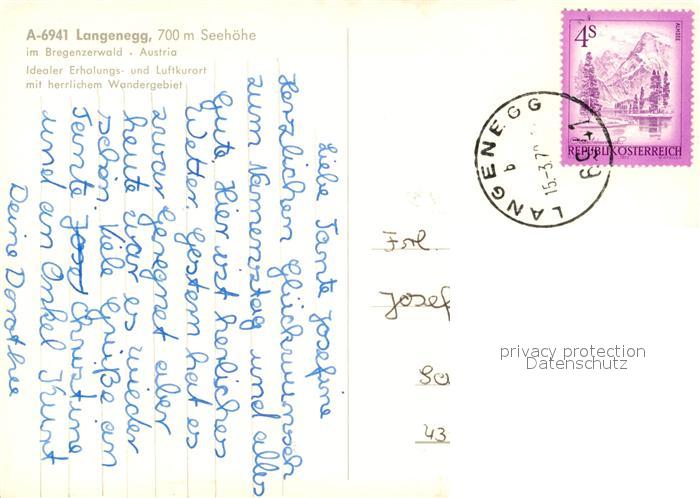 A-6941 Langenegg, 700 m Seehöhe
im Bregenzerwald · Austria
Idealer Erholungs- und Luftkurort
mit herrlichem Wandergebiet
Liebe Tante Josefine
Herzlichen Glückwunsch
zum Namenstag und alles
Gute. Hier ist herliches
Wetter. Gestern hat es
zwar geregnet aber
heute war es wieder
schön. Viele Grüße an
Tante Christine
und an Onkel Kunt
Deine Dorothee
4s
ALMSEE
REPUBLIK ÖSTERREICH
LANGENEGG
b
6941
Frl.
Josef
43
privacy protection
Datenschutz